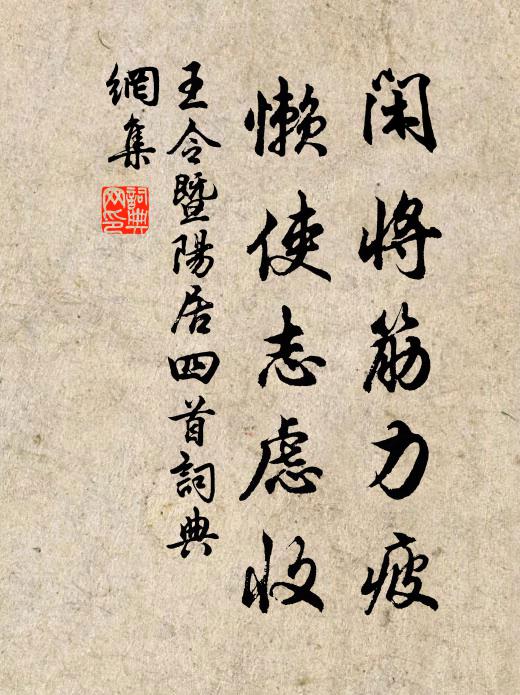 闲将筋力疲
懒使志虑收
王令暨陽居四首詞典
網集
詞典網印